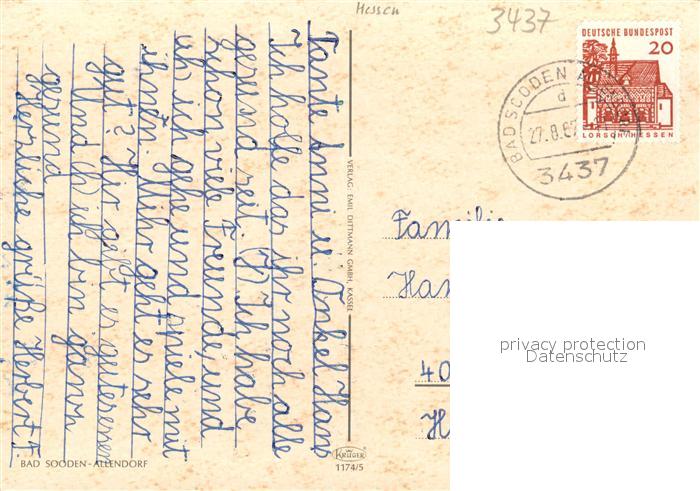 Hessen
3437
DEUTSCHE BUNDESPOST
20
LORSCH/HESSEN
BAD SOODEN
d
27.8.6
3437
Tante Anni u. Onkel Hans
Ich hoffe das ihr noch alle
gesund seit. (J) Ich habe
schon viele Freunde, und
(h) ich gehe und spiele mit
ihnen. Mihr geht er sehr
gut? Hir gift er guteressen
Und (h) ich bin ganz
gesund
Herzliche grüße Herbert F.
VERLAG: EMIL DITTMANN GMBH, KASSEL
KRÜGER
1174/5
BAD SOODEN-ALLENDORF
Familie
Han
40
H
privacy protection
Datenschutz